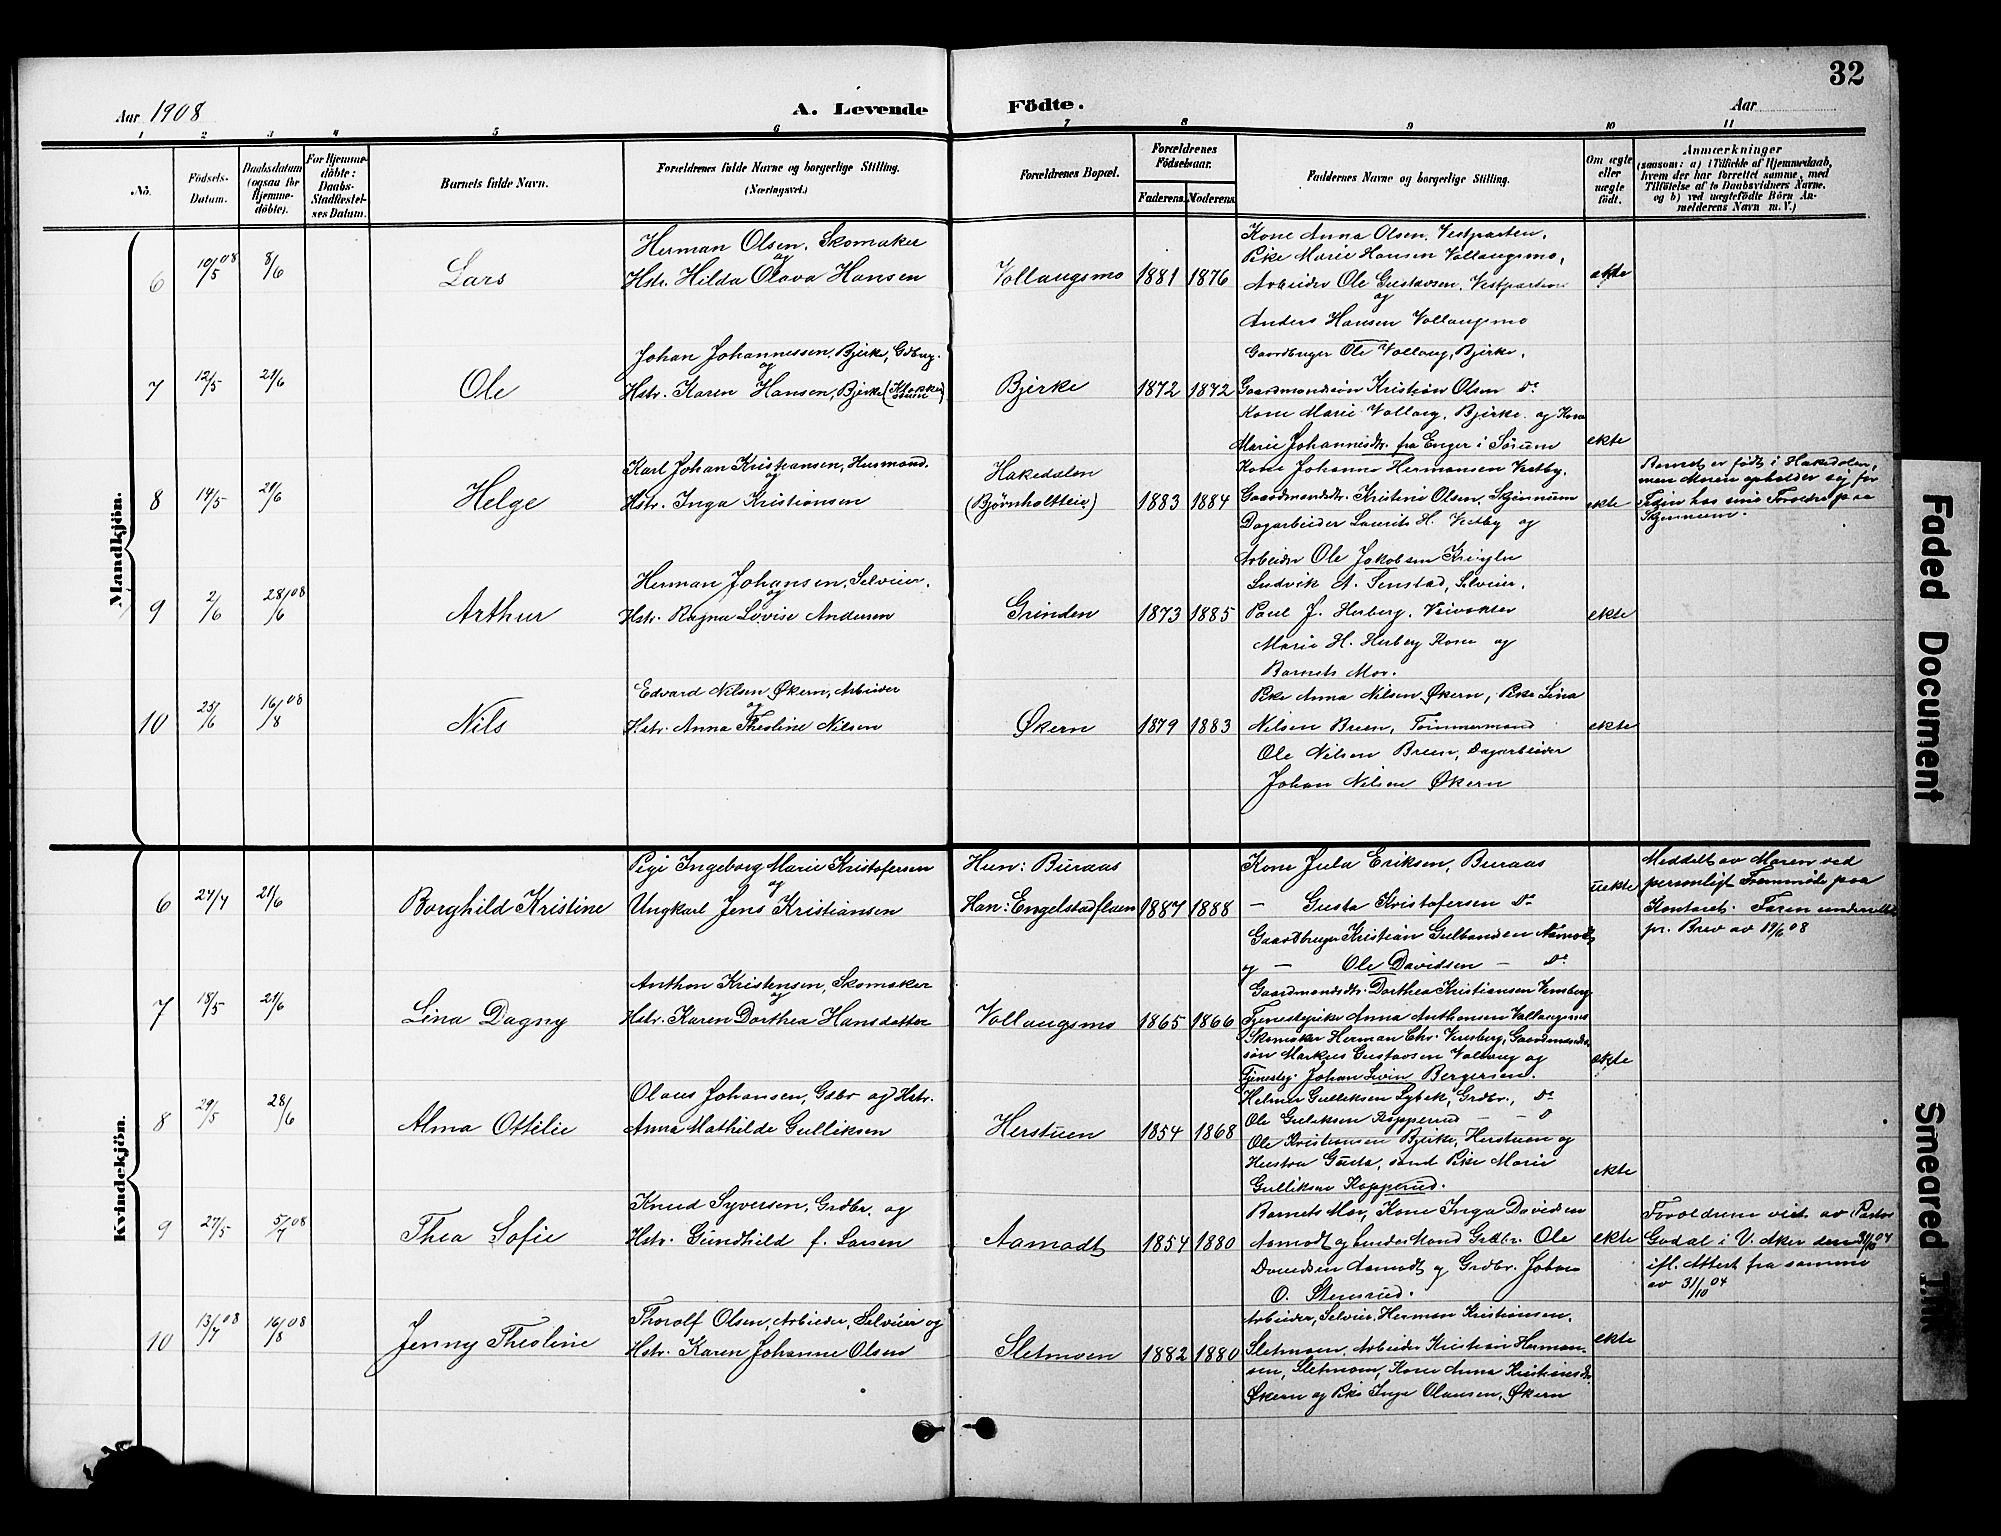 32
Aar 1908
A. Levende Födte.
Aar
1 2 3 4 5 6 7 8 9 10 11
No.
Födsels-Datum.
Daabsdatum (ogsaa for Hjemme-döbte).
For Hjemme-döbte: Daabs-Stadfæstel-ses Datum.
Barnets fulde Navn.
Forældrenes fulde Navne og borgerlige Stilling. (Næringsvei.)
Forældrenes Bopæl.
Forældrenes Födselsaar.
Faderens. Moderens.
Faddernes Navne og borgerlige Stilling.
Om ægte eller uægte födt.
Anmærkninger
(saasom: a) i Tilfælde af Hjemmedaab, hvem der har forrettet samme, med Tilföielse af to Daabsvidners Navne, og b) ved uægtefödte Börn Anmelderens Navn m. V.)
Mandkjön.
6 10/5 08 8/6 Lars
Herman Olsen, Skomaker
og
Hstr. Hilda Olava Hansen
Vollaugsmo 1881 1876
Kone Anna Olsen, Vestparten,
Pike Marie Hansen Vollaugsmo,
Arbeider Ole Gustavsen, Vestparten
og
Anders Hansen Vollaugsmo
ekte
7 12/5 21/6 Ole
Johan Johannessen, Bjerk, Gdbrug.
og
Hstr. Karen Hansen, Bjerke
Bjerke 1872 1872
Gaardbruger Ole Vollaug, Bjerke,
Gaardmandssön Kristian Olsen Do
Kone Marie Vollaug, Bjerke og Kone
Marie Johannesdtr. fra Enger i Sørum
ekte
8 14/5 21/6 Helge
Karl Johan Kristiansen, Husmand.
og
Hstr. Inga Kristiansen
Hakedalen
(Bjørnholtteie)
1883 1884
Kone Johanne Hermansen Vestby,
Gaardmandsdtr. Kristine Olsen, Skjennum
Dagarbeider Laurits H. Vestby og
Arbeider Ole Jakobsen
ekte
Barnet er født i Hakedalen,
men Moren opholder sig for
Tiden hos sine Foreldre paa
Skjennum.
9 2/6 28/6 08 Arthur
Herman Johansen, Selveier,
og
Hstr. Ragna Lovise Andersen
Grinden 1873 1885
Ludvik A. Senstad, Selveier,
Paul J. Herberg, Veivokter
Marie H. Herberg Kone og
Barnets Mor.
ekte
10 25/6 16/8 08 Nils
Edvard Nilsen Økern, Arbeider
og
Hstr. Anna Theoline Nilsen
Økern 1879 1883
Pike Anna Nilsen Økern, Pike Lina
Nilsen Breen, Tømmermand
Ole Nilsen Breen, Dagarbeider
Johan Nilsen Økern
ekte
Kvindekjön.
6 27/4 21/6 Borghild Kristine
Pige Ingeborg Marie Kristofersen
og
Ungkarl Jens Kristiansen
Hun: Buraas
Han: Engelstadflaen
1887 1888
Kone Jula Eriksen, Buraas
— Gusta Kristofersen Do
Gaardbruger Kristian Gulbandsen Aamodt
og — Ole Davidsen — Do
uekte
Meddelt av Moren ved
personligt Fremmøte paa
Kontoret. Faren underrettet
pr. Brev av 19/6 08
7 18/5 21/6 Lina Dagny
Anthon Kristensen, Skomaker
og
Hstr. Karen Dorthea Hansdatter
Vollaugsmo 1865 1866
Gaardmandsdtr. Dorthea Kristiansen
Tjenestepike Anna Anthonsen Vollaugsmo
Skomaker Herman Chr. Gaardmands-
søn Markus Gustavsen Vollaug og
Tjenesteg. Johan Bergersen.
ekte
8 29/5 28/6 Alma Ottilie
Olaus Johansen, Gdbr og Hstr.
Anna Mathilde Gulliksen
Herstuen 1854 1868
Helmer Gulliksen Lybek, Grdbr., Do
Ole Guliksen Kopperud — — D
Ole Kristiansen Bjerke, Herstuen og
Hustru Gusta, samt Pike Marie
Gulliksen Kopperud.
ekte
9 27/5 5/7 08 Thea Sofie
Knud Syversen, Grdbr. og
Hstr. Gundhild f. Larsen
Aamodt 1854 1880
Barnets Mor, Kone Inga Davidsen
Aamodt og hendes Mand Grdbr. Ole
Davidsen Aamodt og Grdbr. Johan
O. Stensrud.
ekte
Foreldrene viet av Pastor
Godal i V. Aker den 31/10 04
ifl. Attest fra samme
av 31/10 04
10 13/7 08 16/8 08 Jenny Theoline
Thorolf Olsen, Arbeider, Selveier og
Hstr. Karen Johanne Olsen
Sletmoen 1882 1880
Arbeider, Selveier, Herman Kristiansen,
Sletmoen, Arbeider Kristian Herman-
sen, Sletmoen, Kone Anna Kristiansdtr
Økern og Pike Inga Olausen, Økern
ekte
Faded Document
Smeared Ink